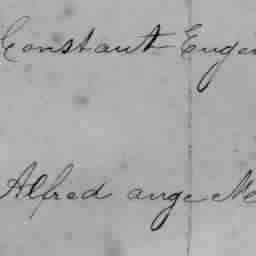 Constant Euge
Alfred ange Me